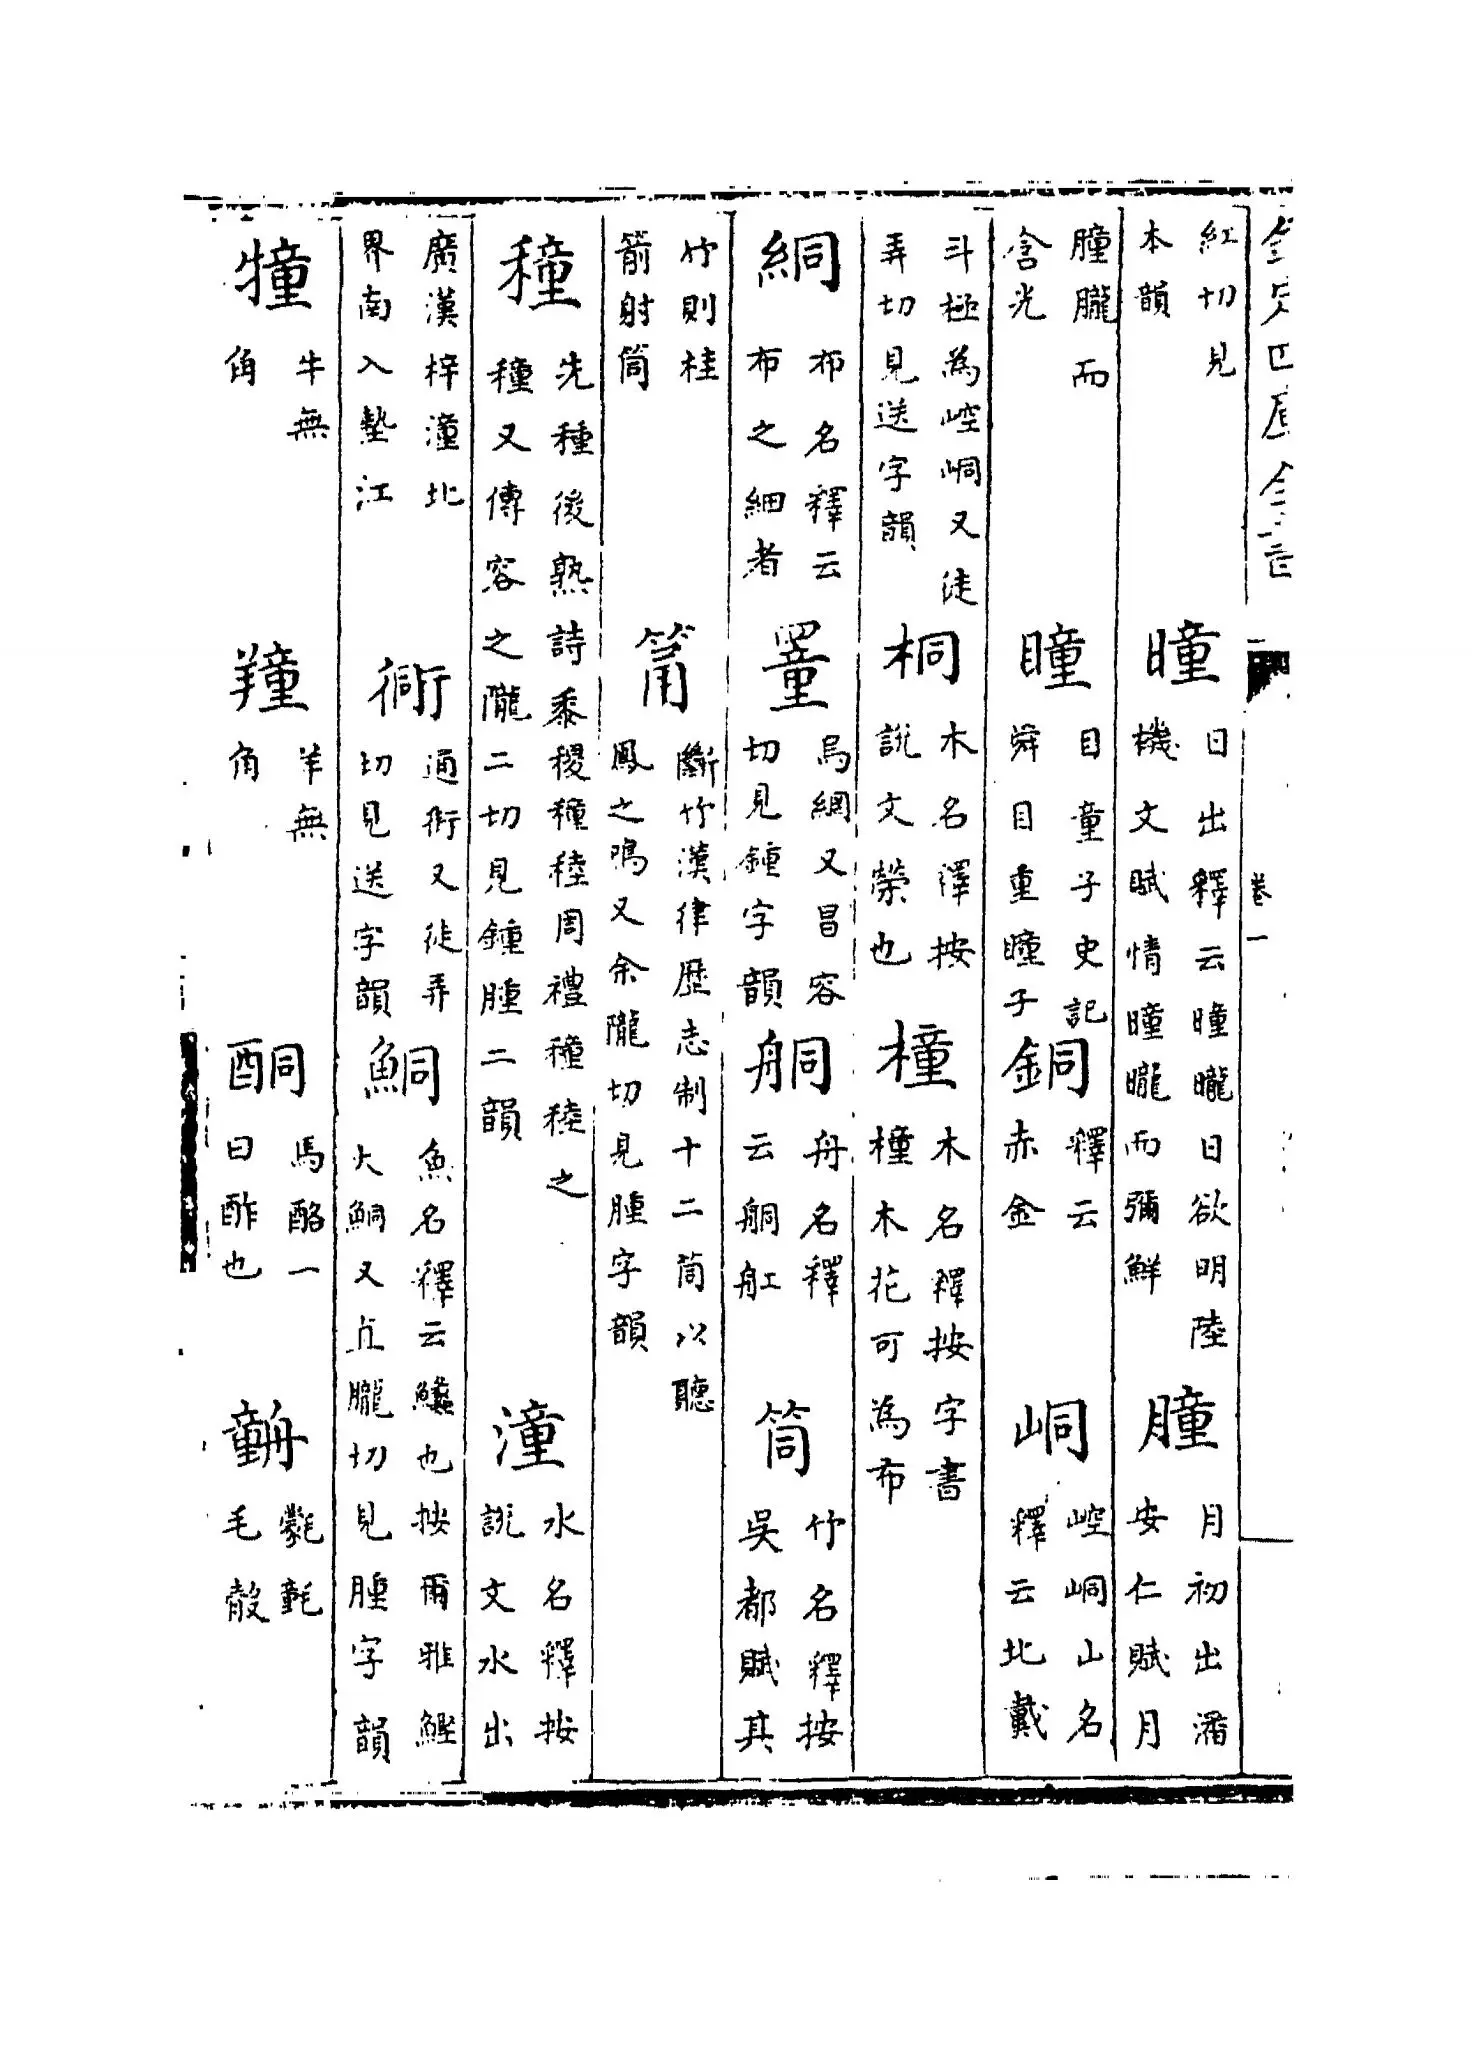 卷一
紅切見本韻 曈 日出釋云曈曨日欲明陸機文賦情曈曨而彌鮮 朣 月初出潘安仁賦月
朣朧而含光 瞳 目童子史記舜目重瞳子 銅 釋云赤金 峒 崆峒山名釋云北戴
斗極為崆峒又徒弄切見送字韻 桐 木名釋按說文榮也 橦 木名釋按字書橦木花可為布
絧 布名釋云布之細者 罿 鳥網又昌容切見鍾字韻 舸 舟名釋云舸舡 筒 竹名釋按吳都賦其
竹則桂箭射筒 筩 斷竹漢律歷志制十二筒以聽鳳之鳴又余隴切見腫字韻
穜 先種後熟詩黍稷穜稑周禮穜稑之種又傳容之隴二切見鍾腫二韻 潼 水名釋按說文水出
廣漢梓潼北界南入墊江 衕 通街又徒弄切見送字韻 鮦 魚名釋云鱺也按爾雅鰹大鮦又直隴切見腫字韻
犝 牛無角 羵 羊無角 酮 馬酪一曰酢也 氃 氋氃毛散